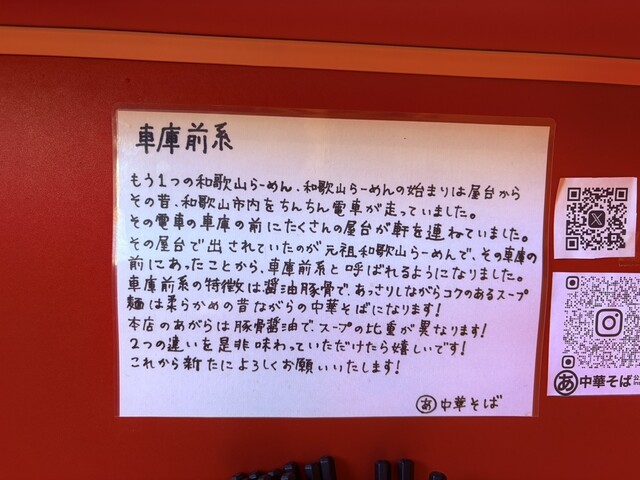 車庫前系
もう1つの和歌山らーめん、和歌山らーめんの始まりは屋台から
その昔、和歌山市内をちんちん電車が走っていました。
その電車の車庫の前にたくさんの屋台が軒を連ねていました。
その屋台で出されていたのが元祖和歌山らーめんで、その車庫の
前にあったことから、車庫前系と呼ばれるようになりました。
車庫前系の特徴は醤油豚骨で、あっさりしながらコクのあるスープ
麺は柔らかめの昔ながらの中華そばになります!
本店のあがらは豚骨醤油で、スープの比重が異なります!
2つの違いを是非味わっていただけたら嬉しいです!
これから新たによろしくお願いいたします!
あ 中華そば
あ 中華そば